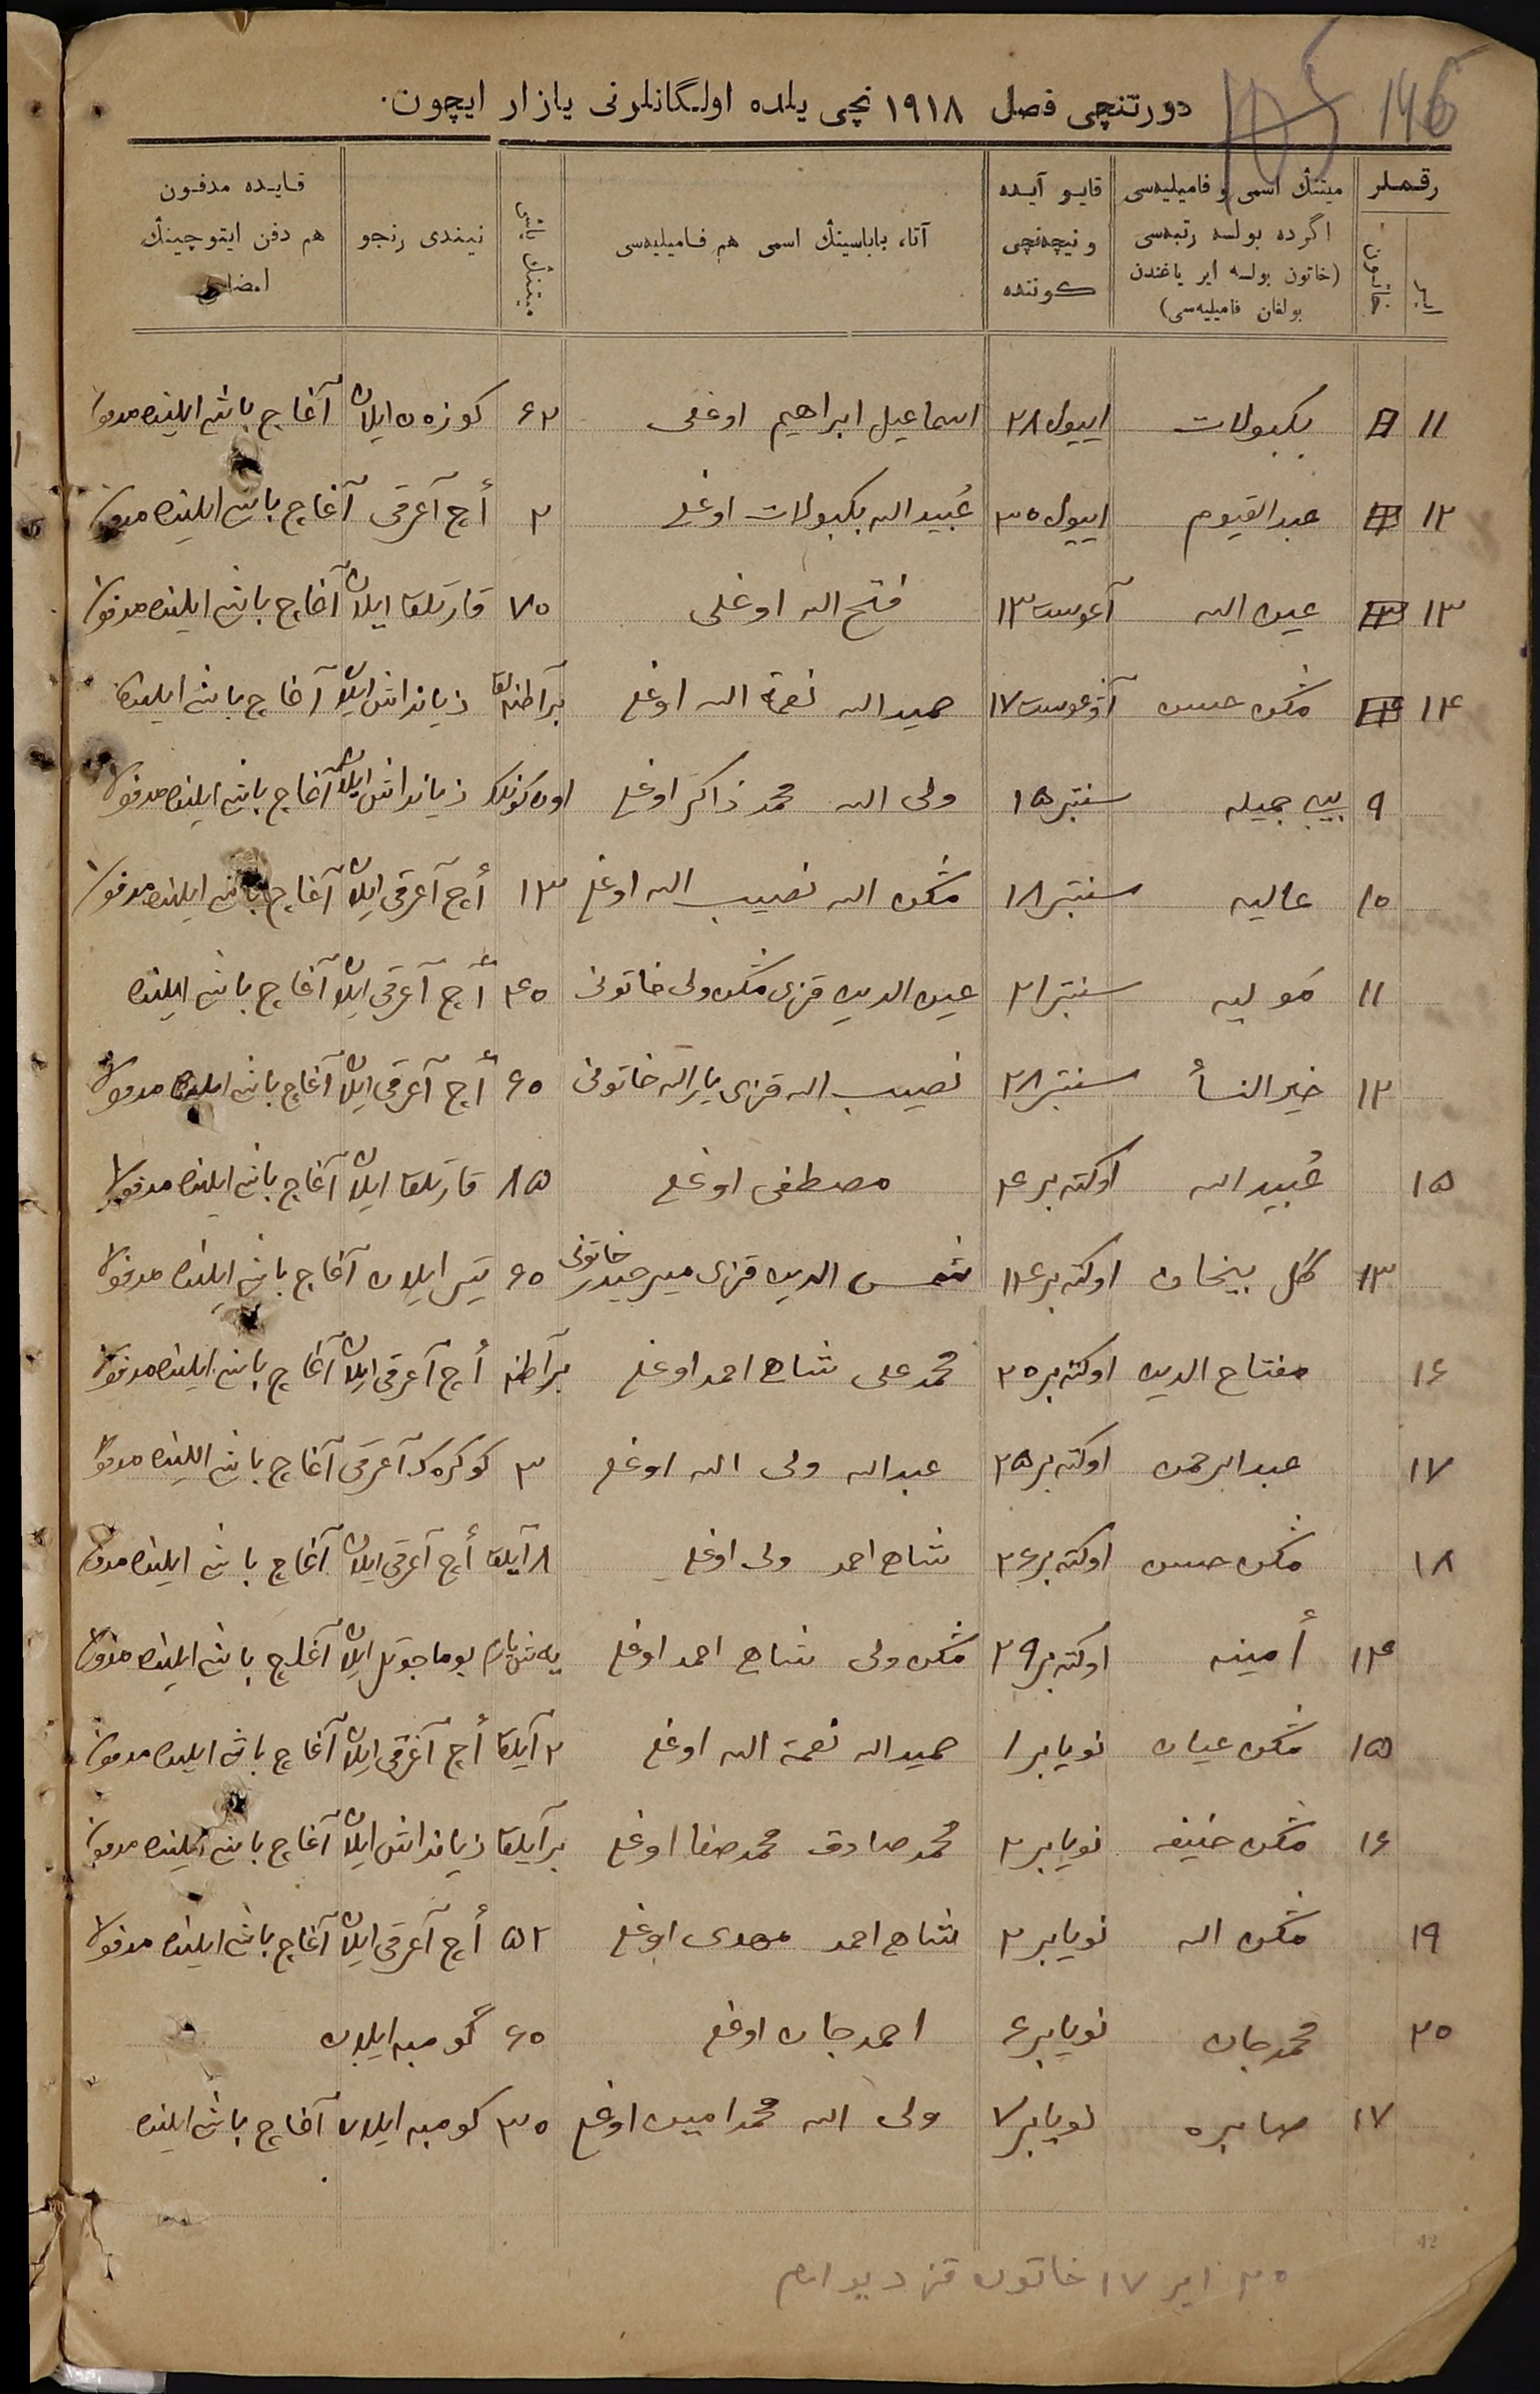 146
105
دورتنچی فصل ١٩١٨ نچی یلده اولگانلرنی یازار ایچون.
رقملر
ایر
خاتون
میتنڭ اسمی و فامیلیه‌سی اگرده بولسه رتبه‌سی (خاتون بولسه ایر یاغندن بولغان فامیلیه‌سی)
قایو آیده و نیچه‌نچی كوننده
آتا، باباسینڭ اسمی هم فامیلیه‌سی
میتنڭ یاشی
نیندی رنجو
قایده مدفون هم دفن ایتوچینڭ امضاسی
١١ بكبولات ایيول ٢٨ اسماعیل ابراهیم اوغلی ٦٢ كوزه‌ن ایلان آغاچ باشی ایلینده مدفون
١٢ عبدالقیوم ایيول ٣٠ عُبیدالله بكبولات اوغلی ٢ أچ آغرقی آغاچ باشی ایلینده مدفون
١٣ عین الله آغوست ١٣ فتح الله اوغلی ٧٠ قارتلقا ایلان آغاچ باشی ایلینده مدفون
١٤ مڭن حسن آوغوست ١٧ حمیدالله نعمة الله اوغلی برآطنه‌لقا زیانداش ایلان آغاچ باشی ایلینده
٩ بیبی جمیله سنتبر ١٥ ولی الله محمد ذاكر اوغلی اون كونلك زیانداش ایلان آغاچ باشی ایلینده مدفون
١٠ عالیه سنتبر ١٨ مڭن الله نصیب الله اوغلی ١٣ أچ آغرقی ایلان آغاچ باشی ایلینده مدفون
١١ مَولیه سنتبر ٢١ عین الدین قزی مڭن ولی خاتونی ٤٠ أچ آغرقی ایلان آغاچ باشی ایلینده
١٢ خیرالنسأ سنتبر ٢٨ نصیب الله قزی یارالله خاتونی ٦٠ أچ آغرقی ایلان آغاچ باشی ایلینده مدفون
١٥ عُبیدالله اوكته‌بر ٤ مصطفی اوغلی ٨٥ قارتلقا ایلان آغاچ باشی ایلینده مدفون
١٣ گل بیخان اوكته‌بر شمس الدین قزی میرحیدر خاتونی ٦٠ تیر ایلان آغاچ باشی ایلینده مدفون
١٦ مفتاح الدین اوكته‌بر ٢٠ محمدعلی شاه احمد اوغلی برآطنه أچ آغرقی ایلان آغاچ باشی ایلینده مدفون
١٧ عبدالرحمن اوكته‌بر ٢٥ عبدالله ولی الله اوغلی ٣ كوكره‌ك آغرقی آغاچ باشی ایلینده مدفون
١٨ مڭن حسن اوكته‌بر ٢٦ شاه احمد ولی اوغلی ٨ آیلقا أچ آغرقی ایلان آغاچ باشی ایلینده مدفون
١٤ أمینه اوكته‌بر ٢٩ مڭن ولی شاه احمد اوغلی ایلان آغاچ باشی ایلینده مدفون
١٥ مڭن عیان نویابر ١ حمیدالله نعمة الله اوغلی ٢ آیلقا أچ آغرقی ایلان آغاچ باشی ایلینده مدفون
١٦ مڭن حنیفه نویابر ٢ محمدصادق محمدصفا اوغلی برآیلقا زیانداش ایلان آغاچ باشی ایلینده مدفون
١٩ مڭن الله نویابر ٢ شاه احمد مهدی اوغلی ٥٢ أچ آغرقی ایلان آغاچ باشی ایلینده مدفون
٢٠ محمدجان نویابر ٤ احمدجان اوغلی ٦٠ گومبه ایلان
١٧ صابره نویابر ٧ ولی الله محمدامین اوغلی ٣٠ كومبه ایلان آغاچ باشی ایلینده
٢٠ ایر ١٧ خاتون قز
42